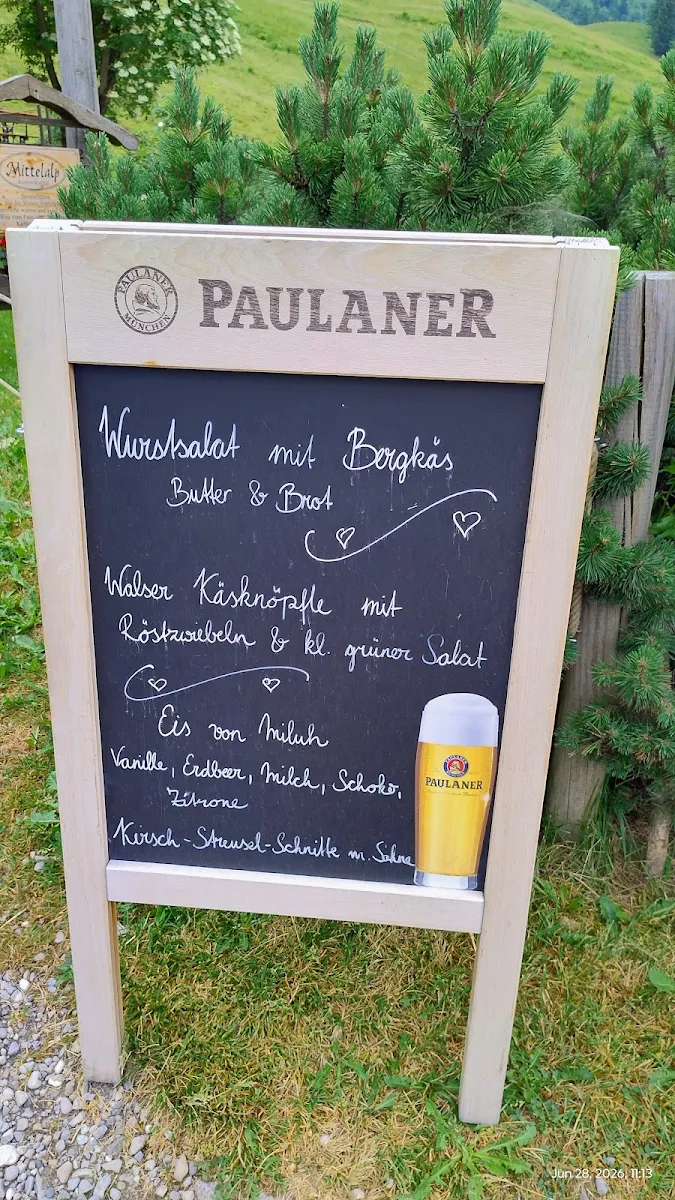 Mittelalp
PAULANER
MÜNCHEN
PAULANER
Wurstsalat mit Bergkäs
Butter & Brot
Walser Käsknöpfle mit
Röstzwiebeln & kl. grüner Salat
Eis von Miluh
Vanille, Erdbeer, Milch, Schoko,
Zitrone
Kirsch-Streusel-Schnitte m. Sahne
PAULANER
Jun 28, 2026, 11:13